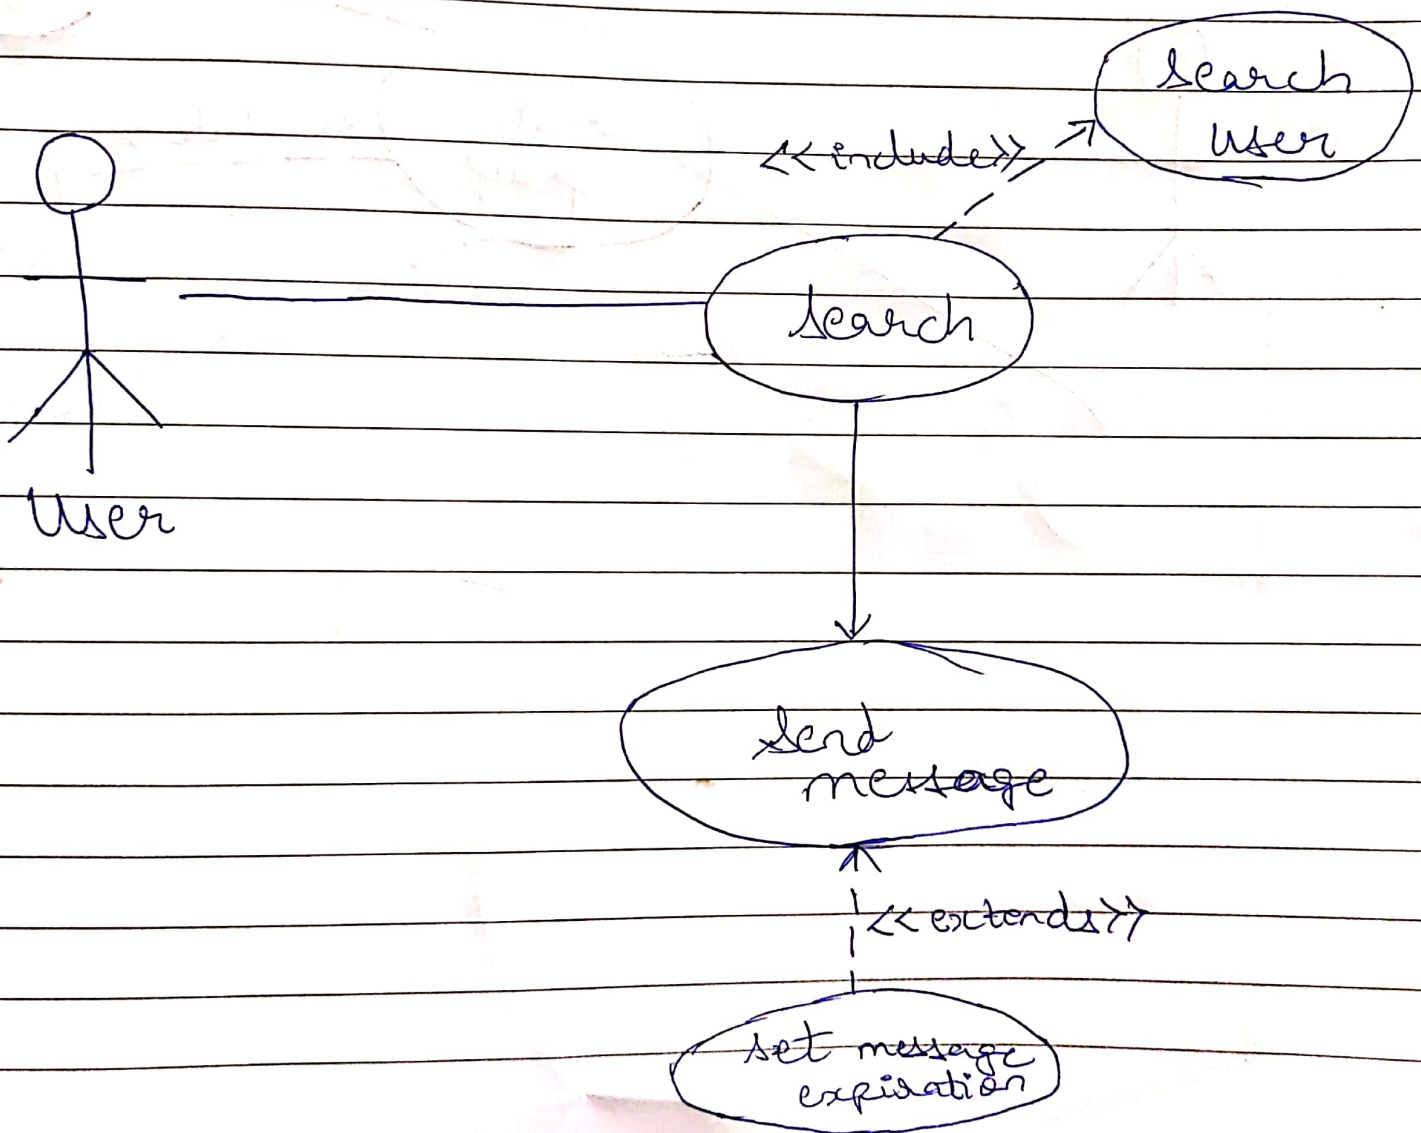 search
user
<<include>>
search
User
send
message
<<extends>>
set message
expiration